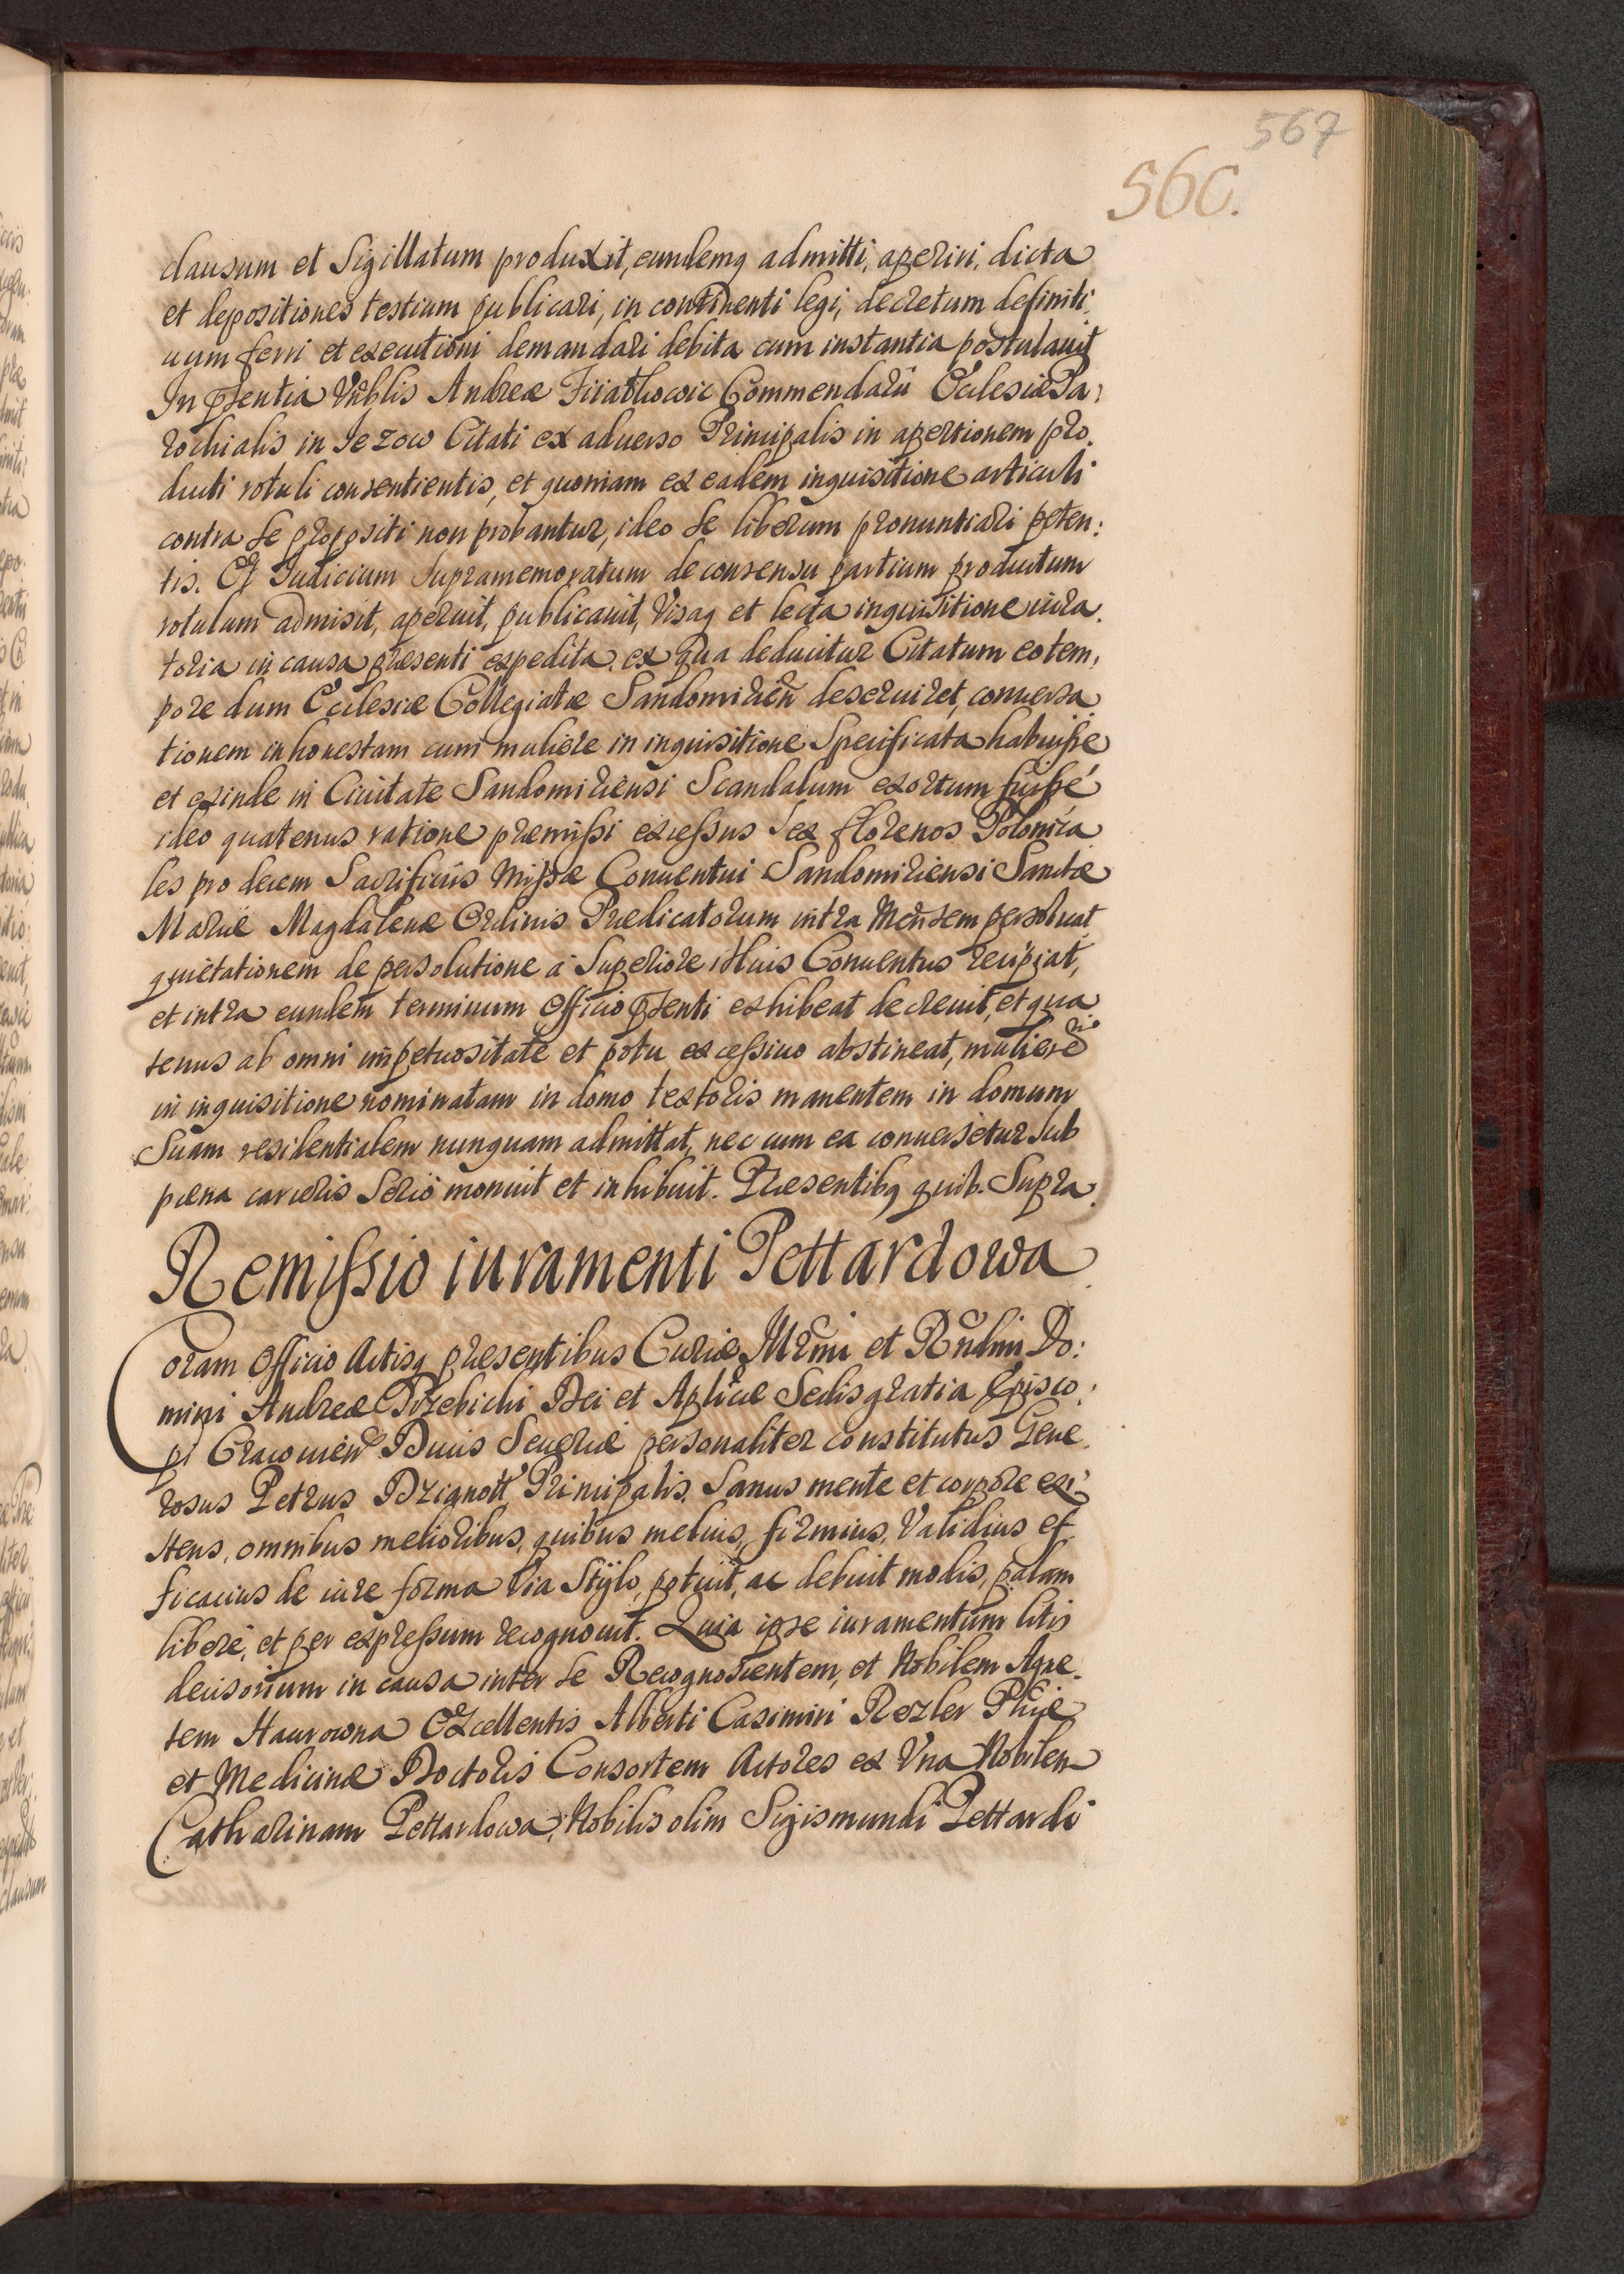 567
560.
clausum et Sigillatum produxit, eundemq admitti, aperiri, dicta
et depositiones testium publicari, in continenti legi, decretum definiti,
uum ferri et executioni demandari debita cum instantia postulauit
In pntia Vnblis Andreæ Commendarii Ecclesiæ Pa:
rochialis in Jezow Citati ex aduerso Principalis in apertionem pro.
ducti rotuli consentientis, et quoniam ex eadem inquisitione articuli
contra se propositi non probantur, ideo se liberum pronuntiari peten:
tis. Et Iudicium Supramemoratum de consensu partium productum
rotulum admisit, aperuit, publicauit, Visaq et lecta inquisitione iura.
toria in causa præsenti expedita, ex qua deducitur Citatum eo tem,
pore dum Ecclesiæ Collegiatæ Sandomirień deseruiret, conuersa
tionem inhonestam cum muliere in inquisitione Specificata habuisse
et exinde in Ciuitate Sandomiriensi Scandalum exortum fuisse
ideo quatenus ratione præmissi excessus sex florenos Polonica
les pro decem Sacrificiis Missæ Conuentui Sandomiriensi Sanctæ
Mariæ Magdalenæ Ordinis Prædicatorum intra Mensem persoluat
quietationem de persolutione à Superiore illius Conuentus recipiat,
et intra eundem terminum Officio pnti exhibeat decreuit, et qua
tenus ab omni impetuositate et potu excessiuo abstineat, mulierē
in inquisitione nominatam in domo textoris manentem in domum
Suam residentialem nunquam admittat, nec cum ea conuersetur sub
pæna carceris Serio monuit et inhibuit. Præsentibq quib. Supra.
Remissio iuramenti Pettardowa
Coram Officio Actisq præsentibus Curiæ Illrmi et Rndmi Do:
mini Andreæ Trzebicki Dei et Aplicæ Sedis gratia Episco:
pi Cracouień Ducis Seueriæ personaliter constitutus Gene.
rosus Petrus Principalis. Sanus mente et corpore exi:
stens, omnibus melioribus, quibus melius, firmius, Validius ef
ficacius de iure forma Via Stylo, potuit, ac debuit modis, palam
liberè, et per expressum recognouit. Quia ipse iuramentum litis
decisorium in causa inter se Recognoscentem, et Nobilem Agne.
tem Haurowna Excellentis Alberti Casimiri Rezler Phiæ
et Medicinæ Doctoris Consortem Actores ex Vna Nobilem
Catharinam Pettardowa, Nobilis olim Sigismundi Pettardi